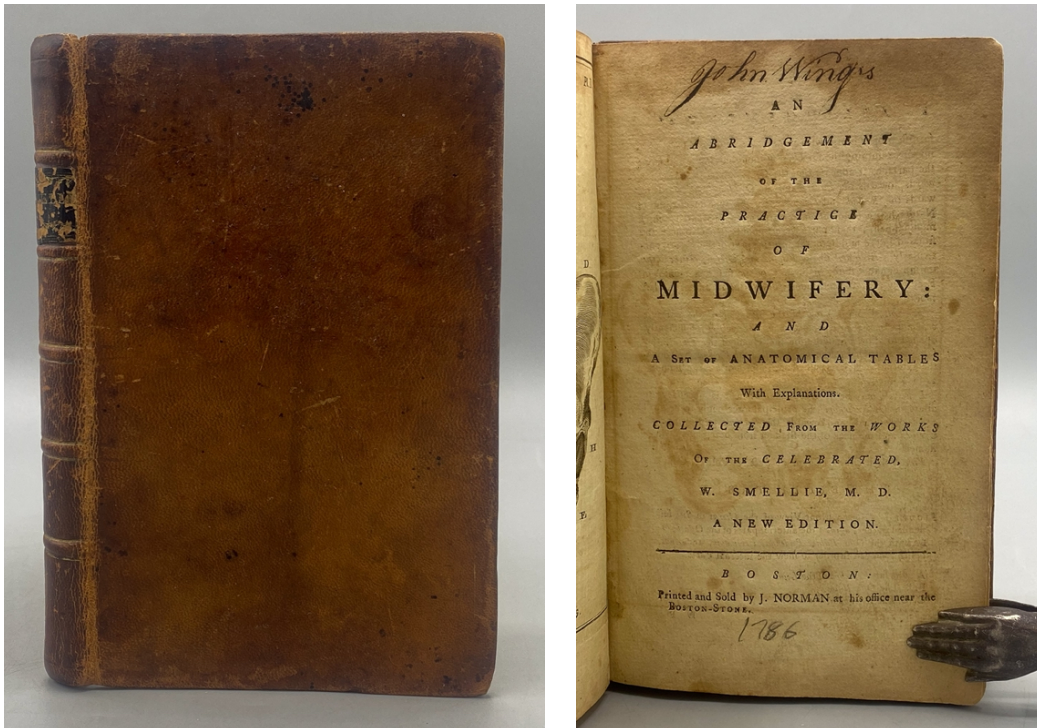 John Wing's
AN
ABRIDGEMENT
OF THE
PRACTICE
OF
MIDWIFERY:
AND
A SET OF ANATOMICAL TABLES
With Explanations.
COLLECTED FROM THE WORKS
OF THE CELEBRATED,
W. SMELLIE, M. D.
A NEW EDITION.
BOSTON:
Printed and Sold by J. NORMAN at his office near the
BOSTON-STONE.
1786
D
H
E